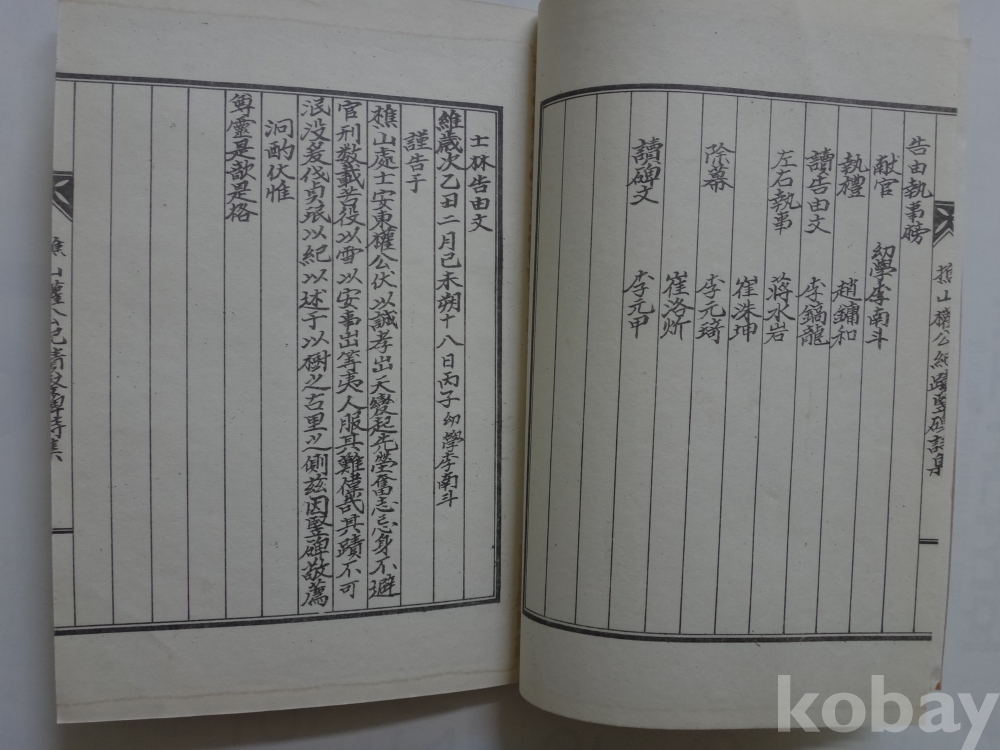 告由執事榜
献官 幼學李南斗
執禮 趙鏞和
讀告由文 李鎬龍
左右執事 蔣水岩
崔洙坤
除幕 李元琦
崔洛炘
讀碑文 李元甲
士林告由文
維歲次乙丑二月己未朔十八日丙子幼學李南斗
謹告于
樵山處士安東權公伏以誠孝出天變起先塋奮志忘身不避
官刑数載苦役以雪以安事出等夷人服其難偉哉其蹟不可
泯没爰伐貞珉以紀以述于以樹之古里之側玆因竪碑敬薦
泂酌伏惟
尊靈是歆是格
kobay